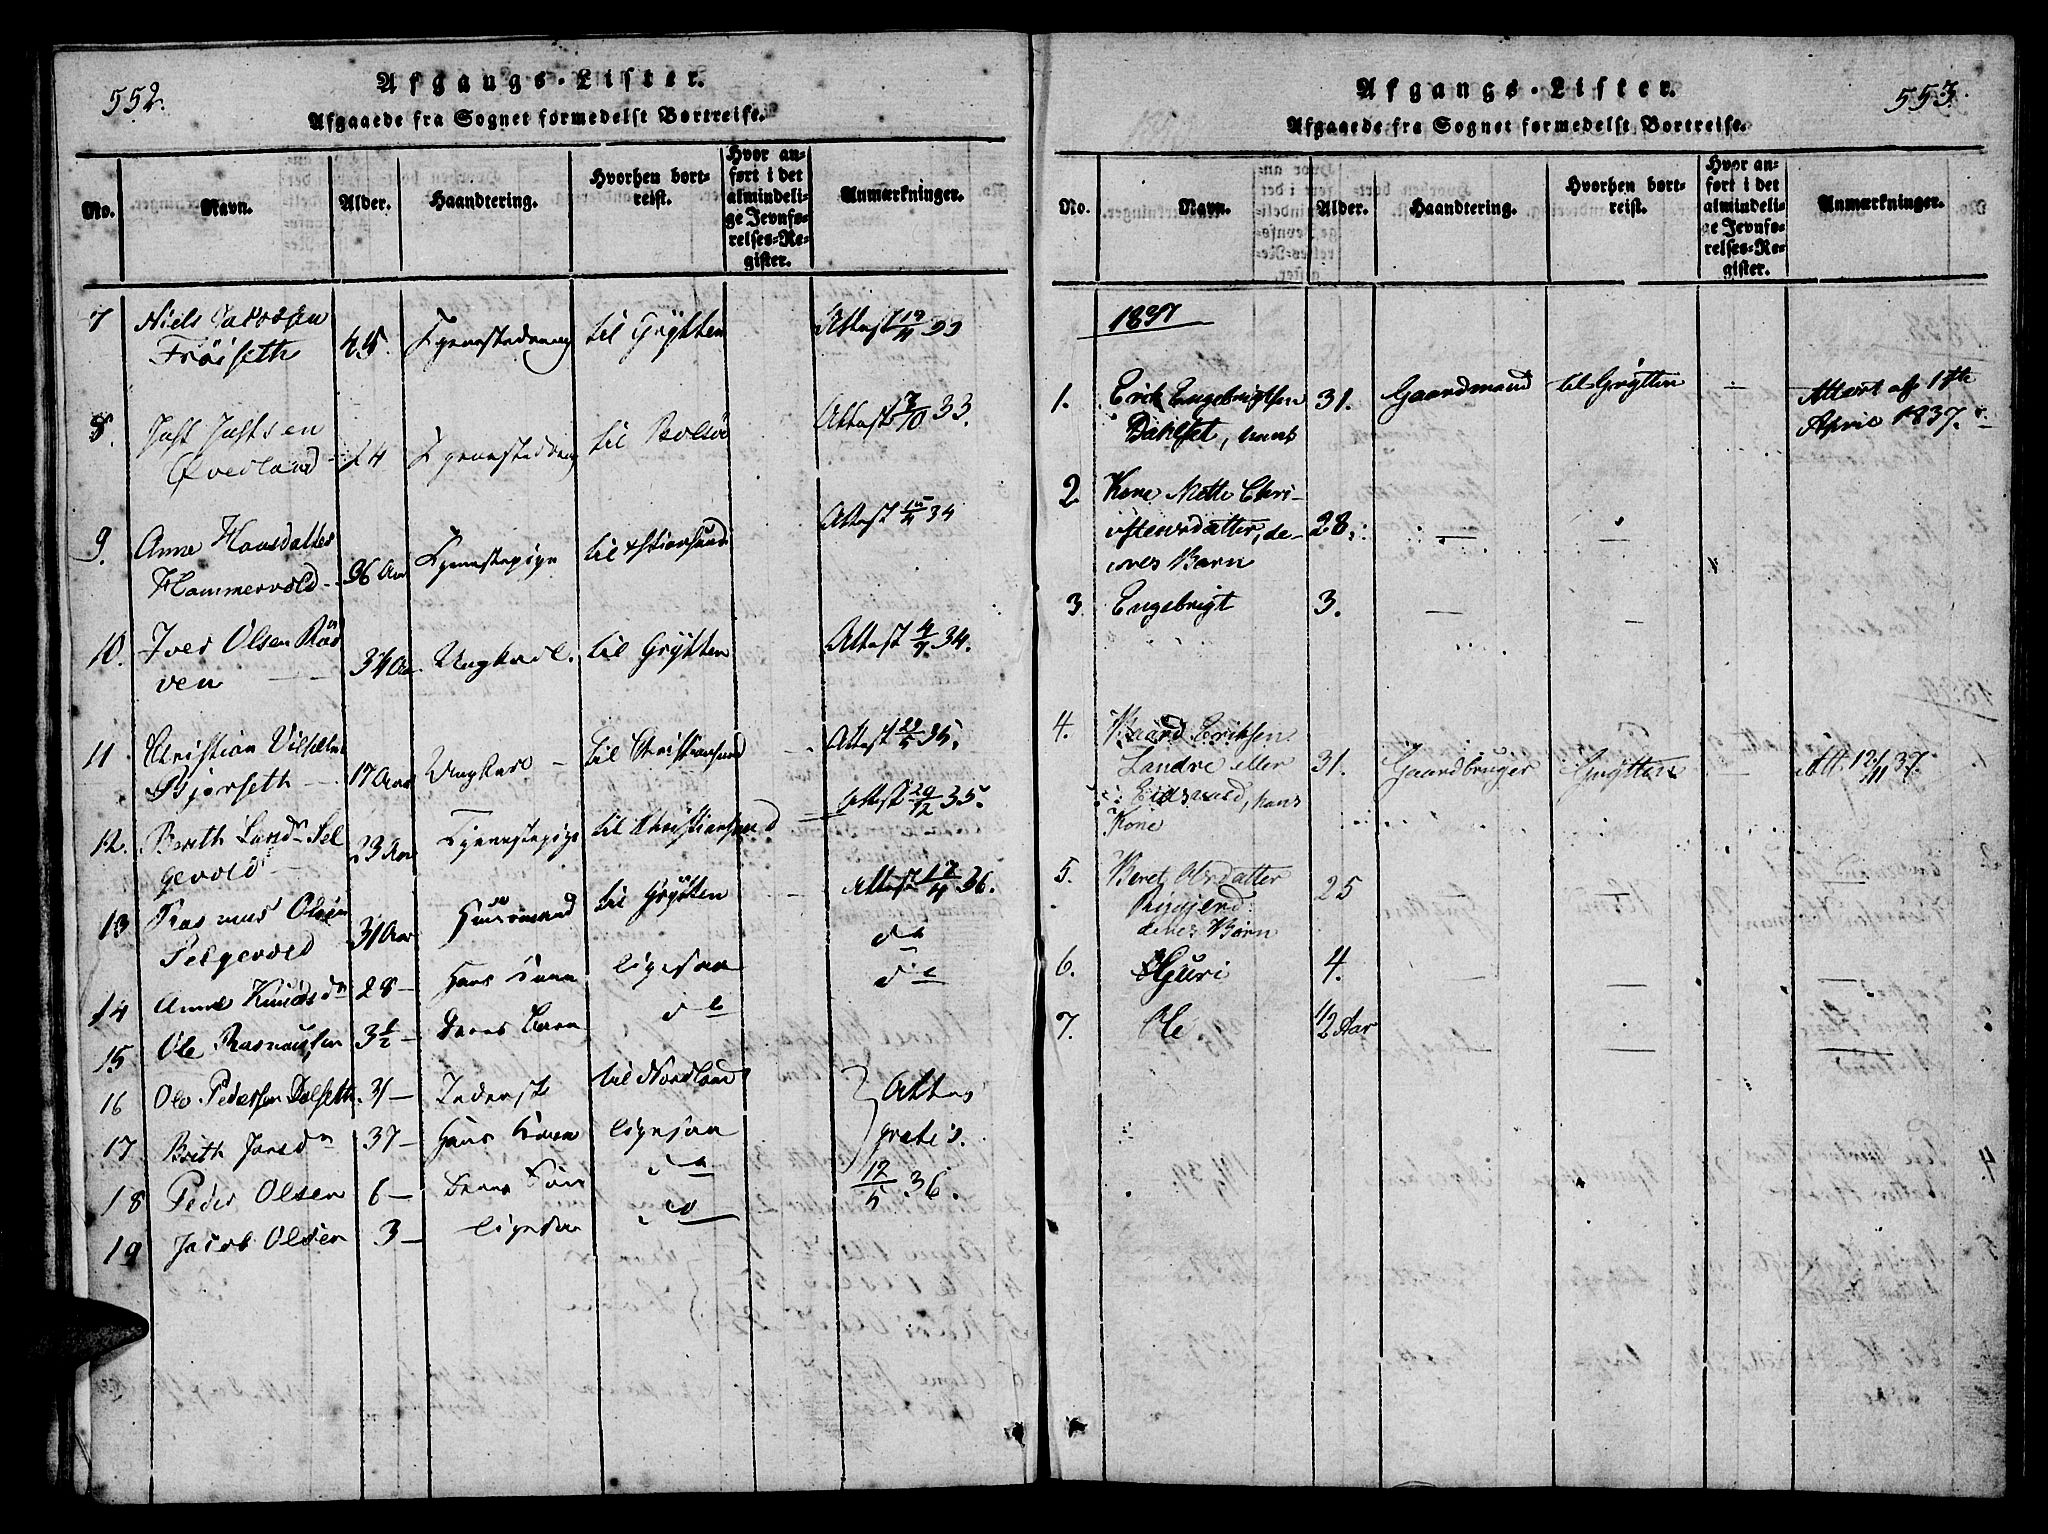 552.
Afgangs-Lister.
Afgaaede fra Sognet formedelst Bortreise.
No. Navn. Alder. Haandtering. Hvorhen bortreist. Hvor anført i det almindelige Jevnførelses-Register. Anmærkninger.
7 Niels Jakobsen 45 Tjenestedreng til Grytten Attest 33
Frøiseth
8. Just Justsen 24 Tjenestedreng til Bolsø Attest 7/10 33.
Øverland
9. Anne Hansdatter 36 Aar Tjenestepige til Christiansund Attest 34
Hammervold
10. Iver Olsen Røs 34 Aar Ungkarl. til Grytten Attest 4/9. 34.
ven
11. Christian Vilhelm 17 Aar Ungkarl til Christiansund Attest 35.
Bjørseth
12. Berith Larsd. Sel 23 Aar Tjenestepige til Christiansund Attest 29/12 35.
gevold
13 Rasmus Olsen 31 Aar Huusmand til Grytten Attest 36.
Selgevold
14 Anne Knudsd. 28 Hans Kone ligesaa do
15 Ole Rasmussen 3½ Deres Barn do
16 Ole Pedersen Dalseth 31 Inderst til Nordland Attest
17 Brith Jonsd. 37 Hans Kone ligesaa gratis.
18 Peder Olsen 6 Deres Søn do 12/5 36.
19 Jacob Olsen 3 ligesaa do
553.
Afgangs-Lister.
Afgaaede fra Sognet formedelst Bortreise.
No. Navn. Alder. Haandtering. Hvorhen bortreist. Hvor anført i det almindelige Jevnførelses-Register. Anmærkninger.
1837
1. Erik Engebrigtsen 31. Gaardmand til Grytten Attest af 1ste
Dahlset, hans April 1837.
2 Kone Mette Chri-
istensdatter, de- 28.
eres Barn
3 Engebrigt 3.
4. Baard Eriksen
Landre eller 31. Gaardbruger Grytten Att. 12/11 37.
Eidsvaad, hans
Kone
5. Beret Olsdatter 25
deres Børn
6. Gjuri 4.
7. Ole 1/2 Aar